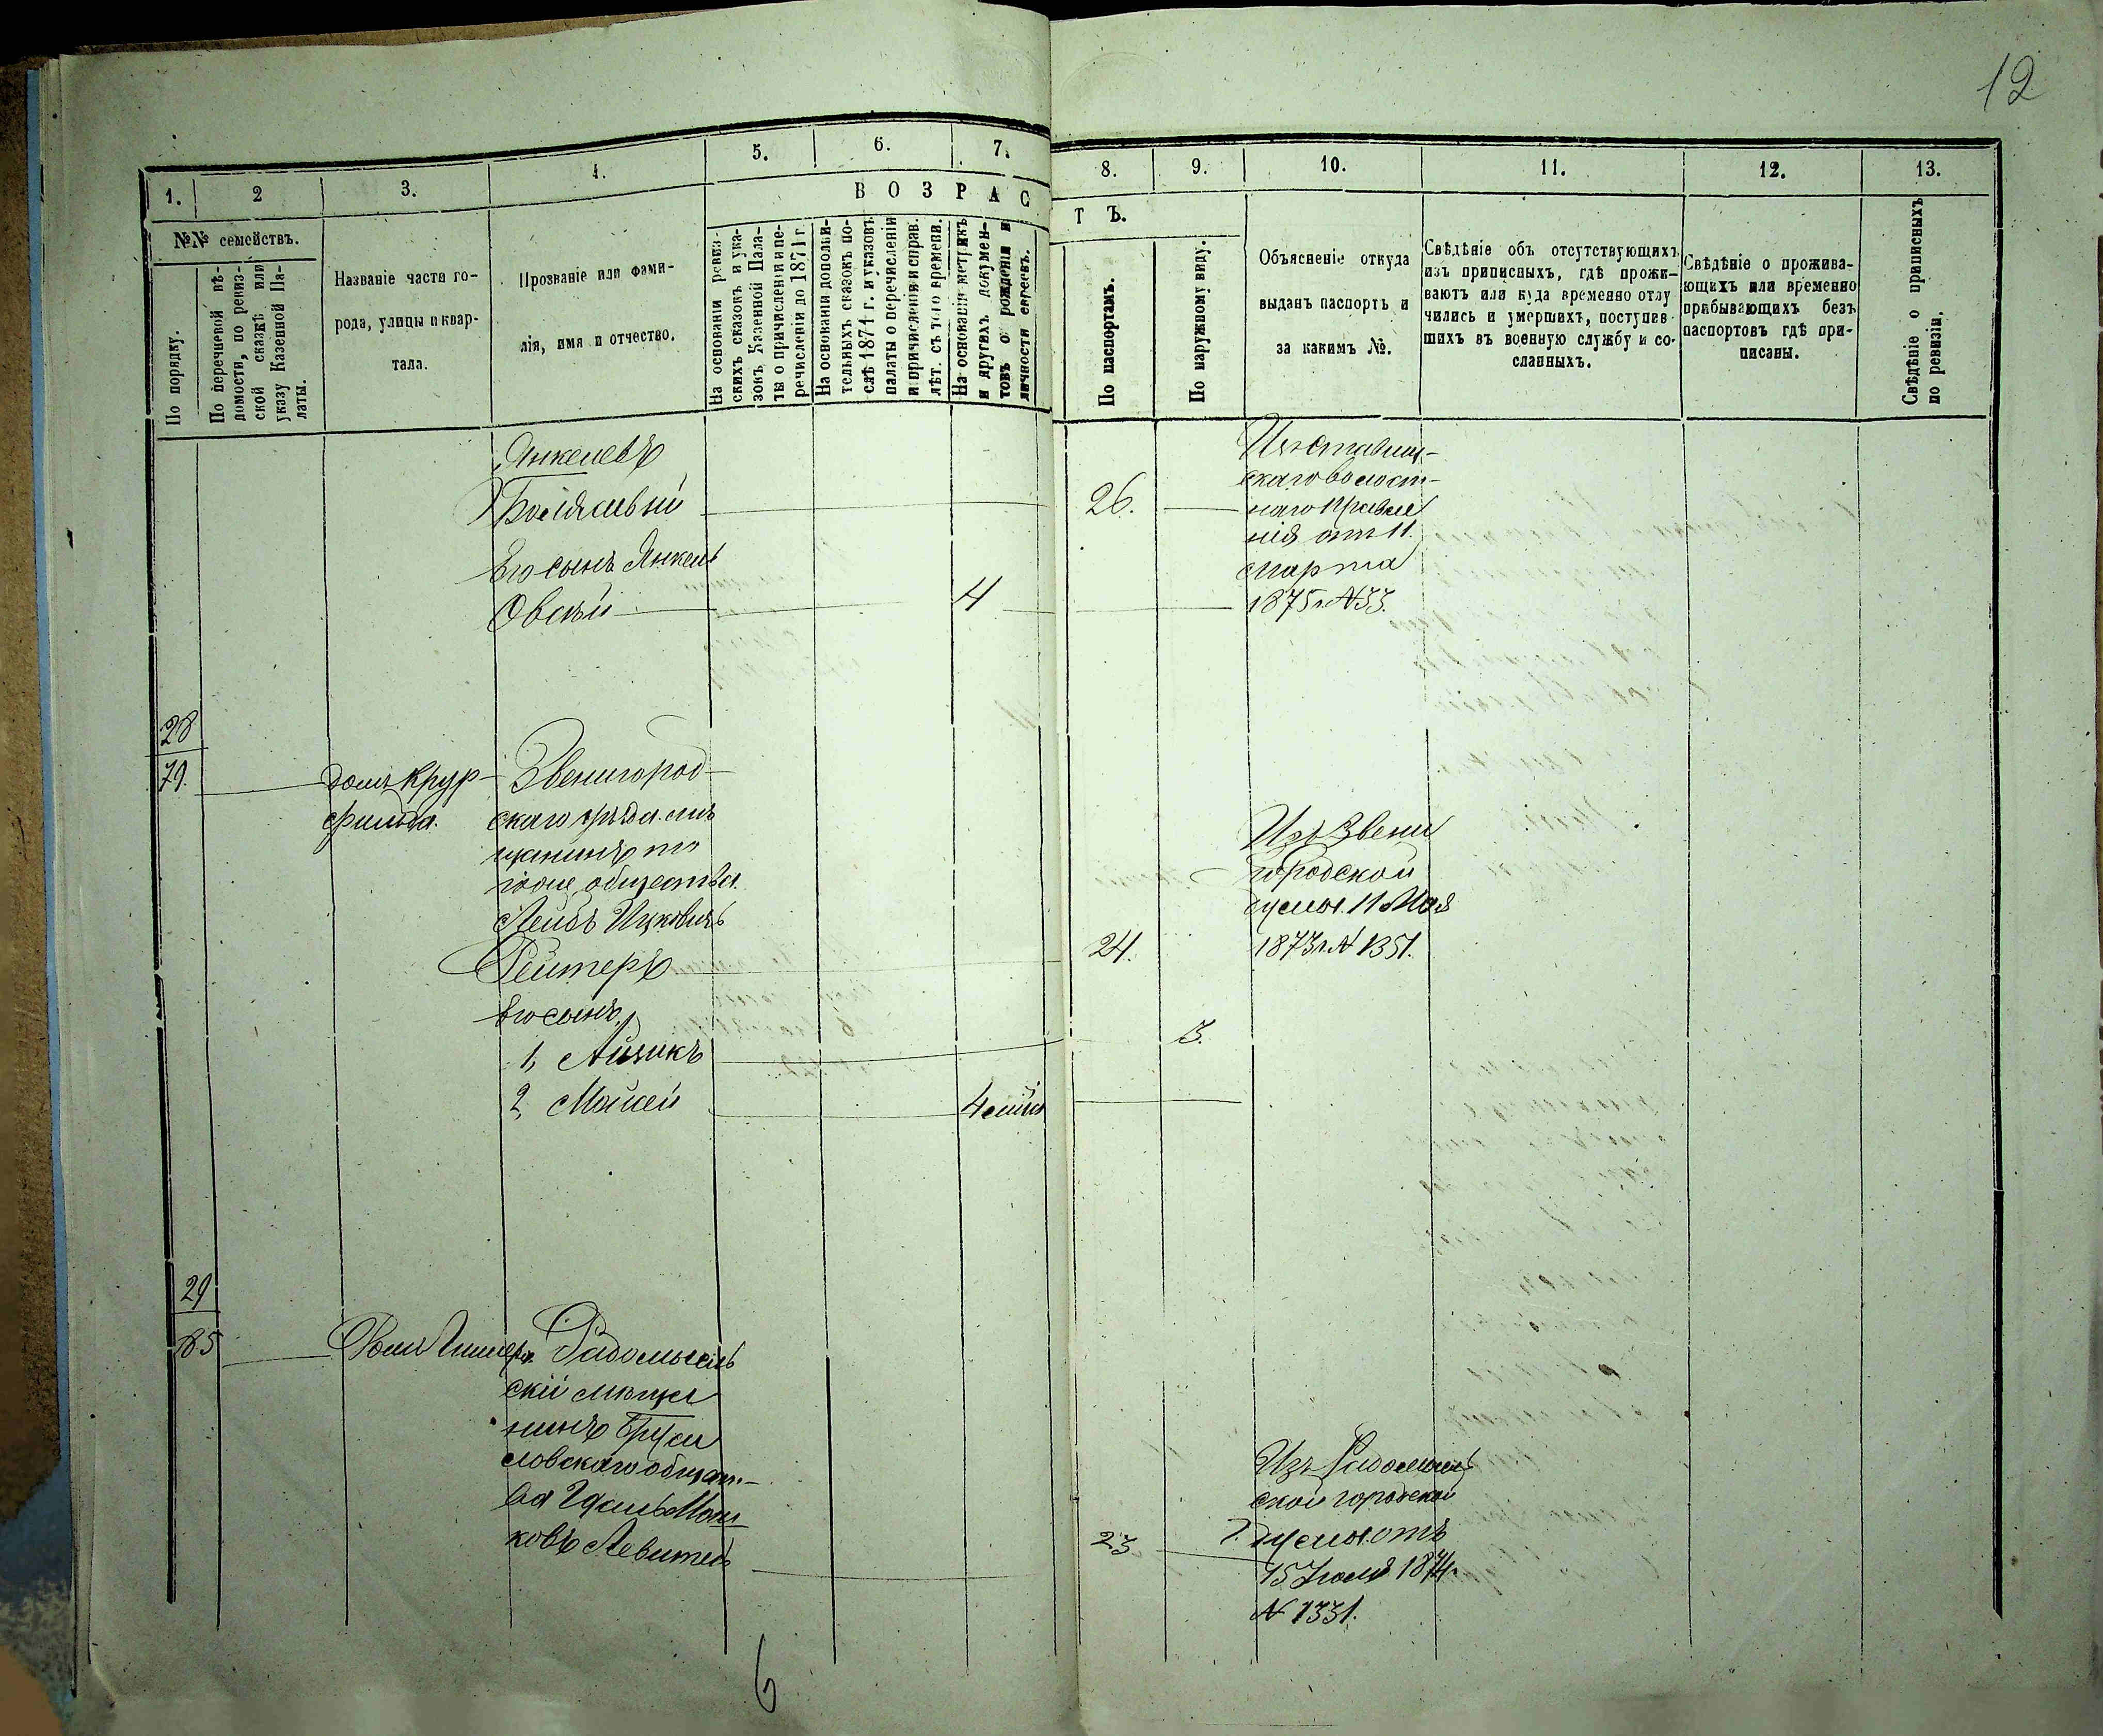 12
1.
2
3.
4.
5.
6.
7.
8.
9.
10.
11.
12.
13.
В О З Р А С
Т Ъ.
№№ семействъ.
По порядку.
По перечневой вѣ-
домости, по ревиз-
ской сказкѣ или
указу Казенной Па-
латы.
Названіе части го-
рода, улицы и квар-
тала.
Прозваніе или фами-
лія, имя и отчество.
На основаніи ревиз-
скихъ сказокъ и ука-
зокъ Казенной Пала-
ты о причисленіи и пе-
речисленіи до 1871 г.
На основаніи дополни-
тельныхъ сказокъ по-
слѣ 1871 г. и указовъ
палаты о перечисленіи
и причисленіи и справ.
лѣт. съ того времени.
На основаніи метрикъ
и другихъ докумен-
товъ о рожденіи и
личности евреевъ.
По паспортамъ.
По наружному виду.
Объясненіе откуда
выданъ паспортъ и
за какимъ №.
Свѣдѣніе объ отсутствующихъ
изъ приписныхъ, гдѣ прожи-
ваютъ или куда временно отлу
чились и умершихъ, поступив-
шихъ въ военную службу и со-
сланныхъ.
Свѣдѣніе о прожива-
ющихъ или временно
прибывающихъ безъ
паспортовъ гдѣ при-
писаны.
Свѣдѣніе о приписныхъ
по ревизіи.
Янкелевъ
Его сынъ Янкель
Овсѣй
4
26.
скаго Волост-
наго Правле
нія отъ 11.
Марта
1875 г. N 33.
28
79.
домъ Крур-
фильда.
Звенигород-
скаго уѣзда мѣ
щанинъ то
гоже общества
Лейбъ Ицковичъ
Рейтеръ
Его сынъ
1, Айзикъ
2, Мойсей
4
24.
3.
Изъ Звени
городской
думы 11 Мая
1873 г. N 1351.
29
185
Домъ
Радомысль
скій мѣща
нинъ Бруси
ловскаго общест-
ва Мош
ковъ Левитъ
23
Изъ Радомысль
ской городской
Думы отъ
15 Іюля 1874 г.
N 1331.
6